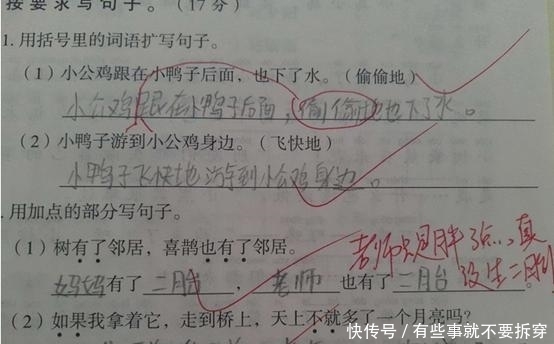 按要求写句子。（17分）
1. 用括号里的词语扩写句子。
（1）小公鸡跟在小鸭子后面，也下了水。（偷偷地）
小公鸡跟在小鸭子后面，偷偷地也下了水。
（2）小鸭子游到小公鸡身边。（飞快地）
小鸭子飞快地游到小公鸡身边。
. 用加点的部分写句子。
（1）树有了邻居，喜鹊也有了邻居。
妈妈有了二月台，老师也有了二月台。
老师只是胖了点，真
没生二胎！
（2）如果我拿着它，走到桥上，天上不就多了一个月亮吗？
快传号／有些事就不要拆穿